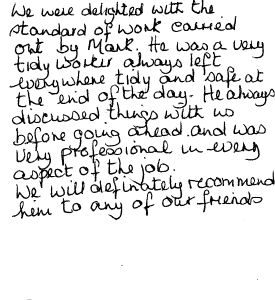 We were delighted with the
standard of work carried
out by Mark. He was a very
tidy worker always left
everywhere tidy and safe at
the end of the day. He always
discussed things with us
before going ahead and was
very professional in every
aspect of the job.
We will definately recommend
him to any of our friends